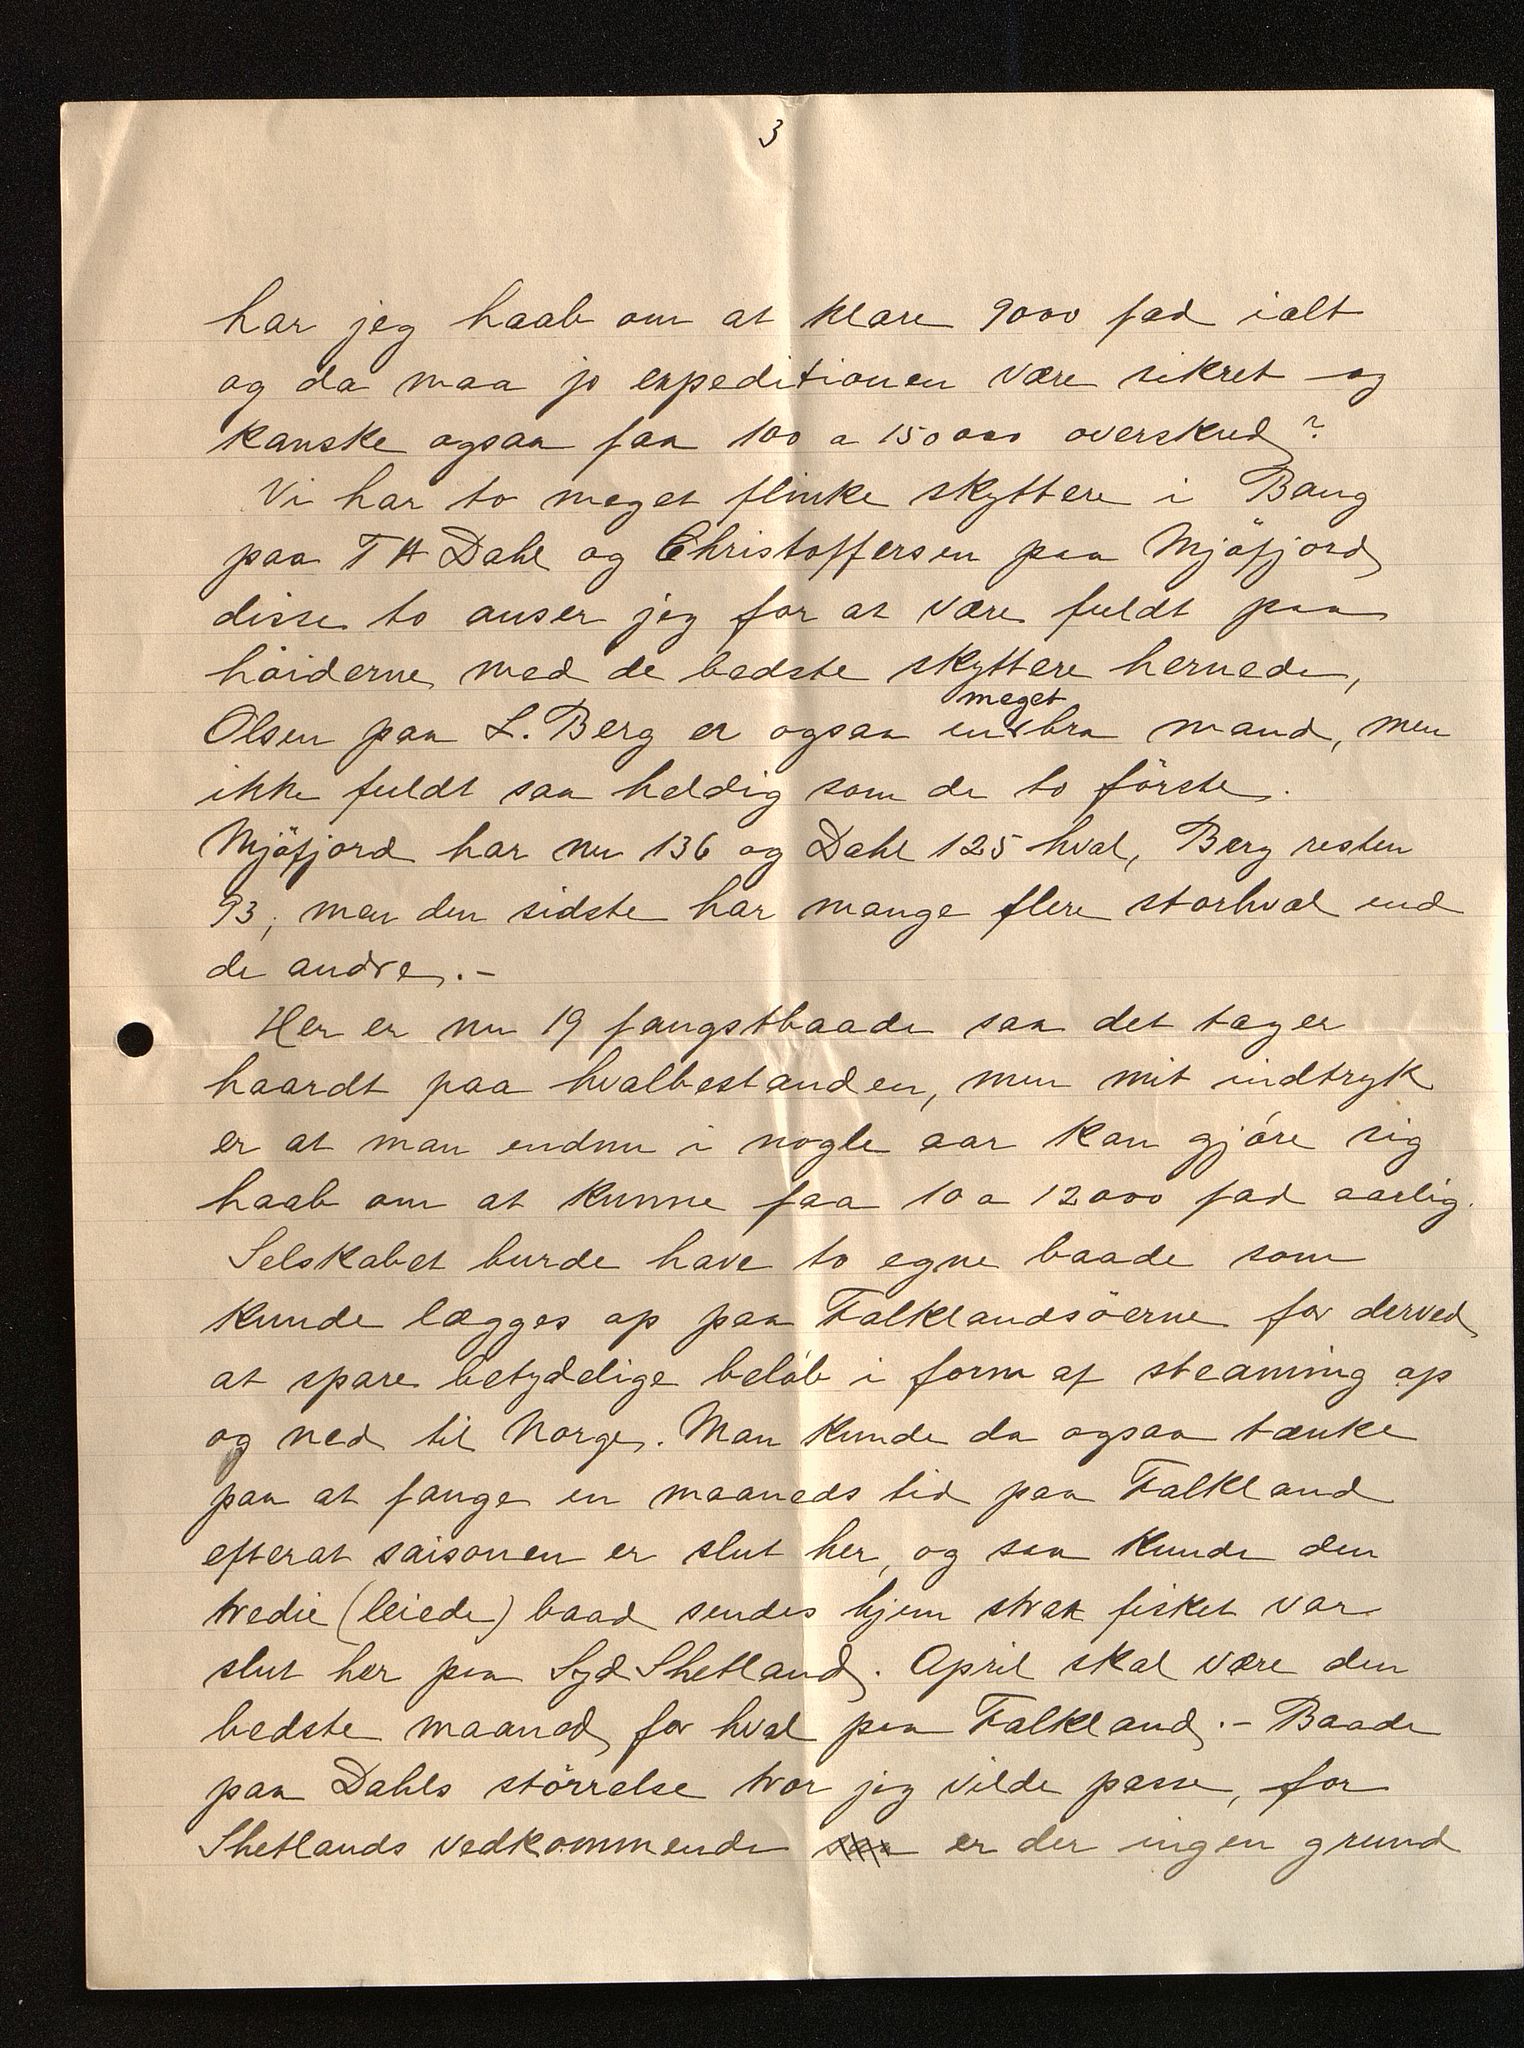 3
har jeg haab om at klare 9000 fad ialt
og da maa jo expeditionen være sikret og
kanske ogsaa faa 100 a 150000 overskud?
Vi har to meget flinke skyttere i Bang
paa T H Dahl og Christoffersen paa Mjöfjord
disse to anser jeg for at være fuldt paa
höiderne med de bedste skyttere hernede,
Olsen paa L. Berg er ogsaa en meget bra mand, men
ikke fuldt saa heldig som de to förste.
Mjöfjord har nu 136 og Dahl 125 hval, Berg resten
93, men den sidste har mange flere storhval end
de andre.-
Her er nu 19 fangstbaade saa det tager
haardt paa hvalbestanden, men mit indtryk
er at man endnu i nogle aar kan gjöre sig
haab om at kunne faa 10 a 12000 fad aarlig.
Selskabet burde have to egne baade som
kunde lægges op paa Falklandsöerne for derved
at spare betydelige belöb i form af steaming op
og ned til Norge. Man kunde da ogsaa tænke
paa at fange en maaneds tid paa Falkland
efterat saisonen er slut her, og saa kunde den
tredie (leiede) baad sendes hjem strax fisket var
slut her paa Syd Shetland. April skal være den
bedste maaned for hval paa Falkland.- Baade
paa Dahls störrelse tror jeg vilde passe, for
Shetlands vedkommende saa er der ingen grund